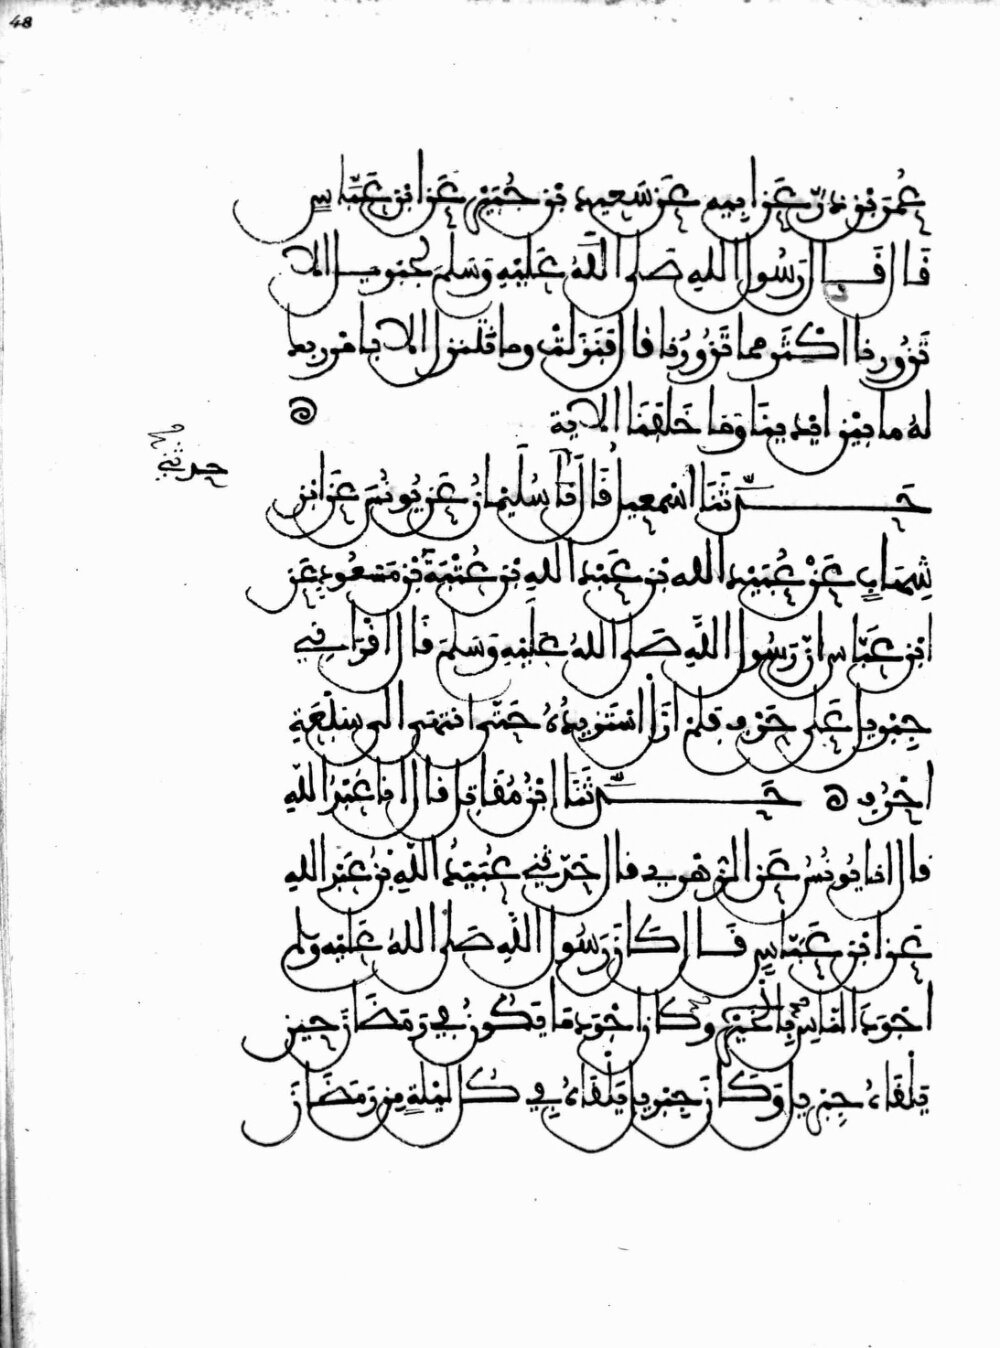 48
عُمَرَ بْنِ ذَرٍّ عَنْ ابِيهِ عَنْ سَعِيدِ بْنِ جُبَيْرٍ عَنِ ابْنِ عَبَّاسٍ
قَالَ قَالَ رَسُولُ اللهِ صَلَّى اللَّهُ عَلَيْهِ وَسَلَّمَ لِجِبْرِيلَ الا
تَزُورُنا اكْثَرَ مما تَزُورُنا قال فَنَزَلَتْ وما نَتَنَزَّلُ الا بامْرِ ربك
لهُ ما بَيْنَ ايْدِينَا وَمَا خَلْفَنَا الاية
حَدَّثَنَا اسْمعِيلُ قَالَ نَا سُلَيْمانُ عَنْ يُونُسَ عَنِ ابْنِ
حدثني
شِهَابٍ عَنْ عُبَيْدِ الله بْنِ عَبْدِ اللهِ بْنِ عُتْبَةَ بْنِ مَسْعُودٍ عَنِ
ابْنِ عَبَّاسٍ انَّ رَسُولَ اللَّهِ صَلَّى اللهُ عَلَيْهِ وَسَلَّمَ قَالَ اقْرَانِي
جِبْرِيلُ عَلَى حَرْفٍ فلمْ ازَلْ اسْتَزِيدُهُ حَتَّى انتهى الى سَبْعَةِ
احْرُفٍ حَدَّثَنَا ابْنُ مُقَاتِلٍ قال انا عَبْدُ اللهِ
قال انا يُونُسُ عَنِ الزُّهْرِي قال حَدَّثَنِي عُبَيْدُ اللَّهِ بْنُ عَبْدِ اللهِ
عَنِ ابْنِ عَبَّاسٍ قَالَ كَانَ رَسُولُ اللَّهِ صَلَّى اللهُ عَلَيْهِ وسلم
اجْوَدَ النَّاسِ بِالْخَيْرِ وَكَانَ اجْوَدَ مَا يَكُونُ فِي رَمَضَانَ حِينَ
يَلْقَاهُ جِبْرِيلُ وَكَانَ جِبْرِيلُ يَلْقَاهُ فِي كُلِّ لَيْلَةٍ مِنْ رَمَضَانَ